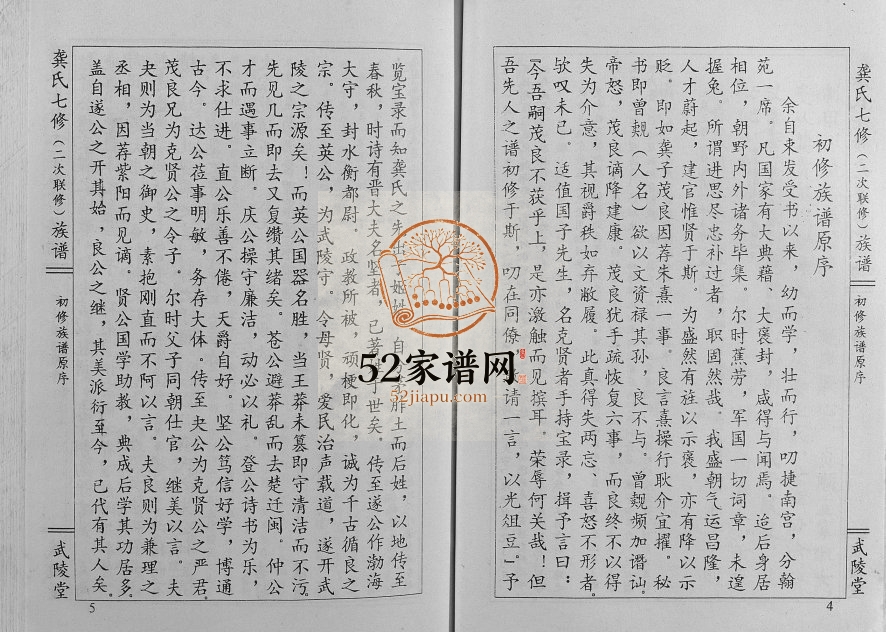 龚氏七修（二次联修）族谱
初修族谱原序
武陵堂
4
初修族谱原序
余自束发受书以来，幼而学，壮而行，叨捷南宫，分翰
苑一席。凡国家有大典藉、大褒封，咸得与闻焉。迨后身居
相位，朝野内外诸务毕集。尔时蕉劳，军国一切词章，未遑
握兔。所谓进思尽忠补过者，职固然哉。我盛朝气运昌隆，
人才蔚起，建官惟贤于斯。为盛然有旌以示褒，亦有降以示
贬。即如龚子茂良因荐朱熹一事。良言熹操行耿介宜擢。秘
书即曾觌（人名）欲以文资禄其孙，良不与。曾觌频加谮讪。
帝怒，茂良谪降建康。茂良犹手疏恢复六事，而良终不以得
失为介意，其视爵秩如弃敝履。此真得失两忘、喜怒不形者。
欤叹未已。适值国子先生，名克贤者手持宝录，揖予言曰：
『今吾嗣茂良不获乎上，是亦激触而见摈耳。荣辱何关哉！但
吾先人之谱初修于斯，叨在同僚，请一言，以光俎豆。』予
览宝录而知龚氏之先出于姬姓，自胙土而后姓，以地传至
春秋，时诗有晋大夫名坚者，已著于世矣。传至遂公作渤海
大守，封水衡都尉。政教所被，顽梗即化，诚为千古循良之
宗。传至英公，为武陵守。令母贤，爱民治声载道，遂开武
陵之宗源矣！而英公国器名胜，当王莽未篡即守清洁而不污。
先见几而即去又复缵其绪矣。苍公避莽乱而去楚迁闽。仲公
才而遇事立断。庆公操守廉洁，动必以礼。登公诗书为乐，
不求仕进。直公乐善不倦，天爵自好。坚公笃信好学，博通
古今。达公莅事明敏，务存大体。传至夬公为克贤公之严君。
茂良兄为克贤公之令子。尔时父子同朝仕官，继美以言。夫
夬则为当朝之御史，素抱刚直而不阿以言。夫良则为兼理之
丞相，因荐紫阳而见谪。贤公国学助教，典成后学其功居多。
盖自遂公之开其始，良公之继，其美派衍至今，已代有其人矣。
龚氏七修（二次联修）族谱
初修族谱原序
武陵堂
5
52家谱网
52jiapu.com